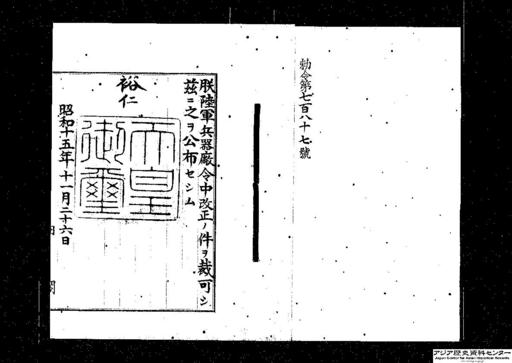 勅令第七百八十七號
朕陸軍兵器廠令中改正ノ件ヲ裁可シ
茲ニ之ヲ公布セシム
裕仁
天皇御璽
昭和十五年十一月二十六日
内閣
アジア歴史資料センター
Japan Center for Asian Historical Records